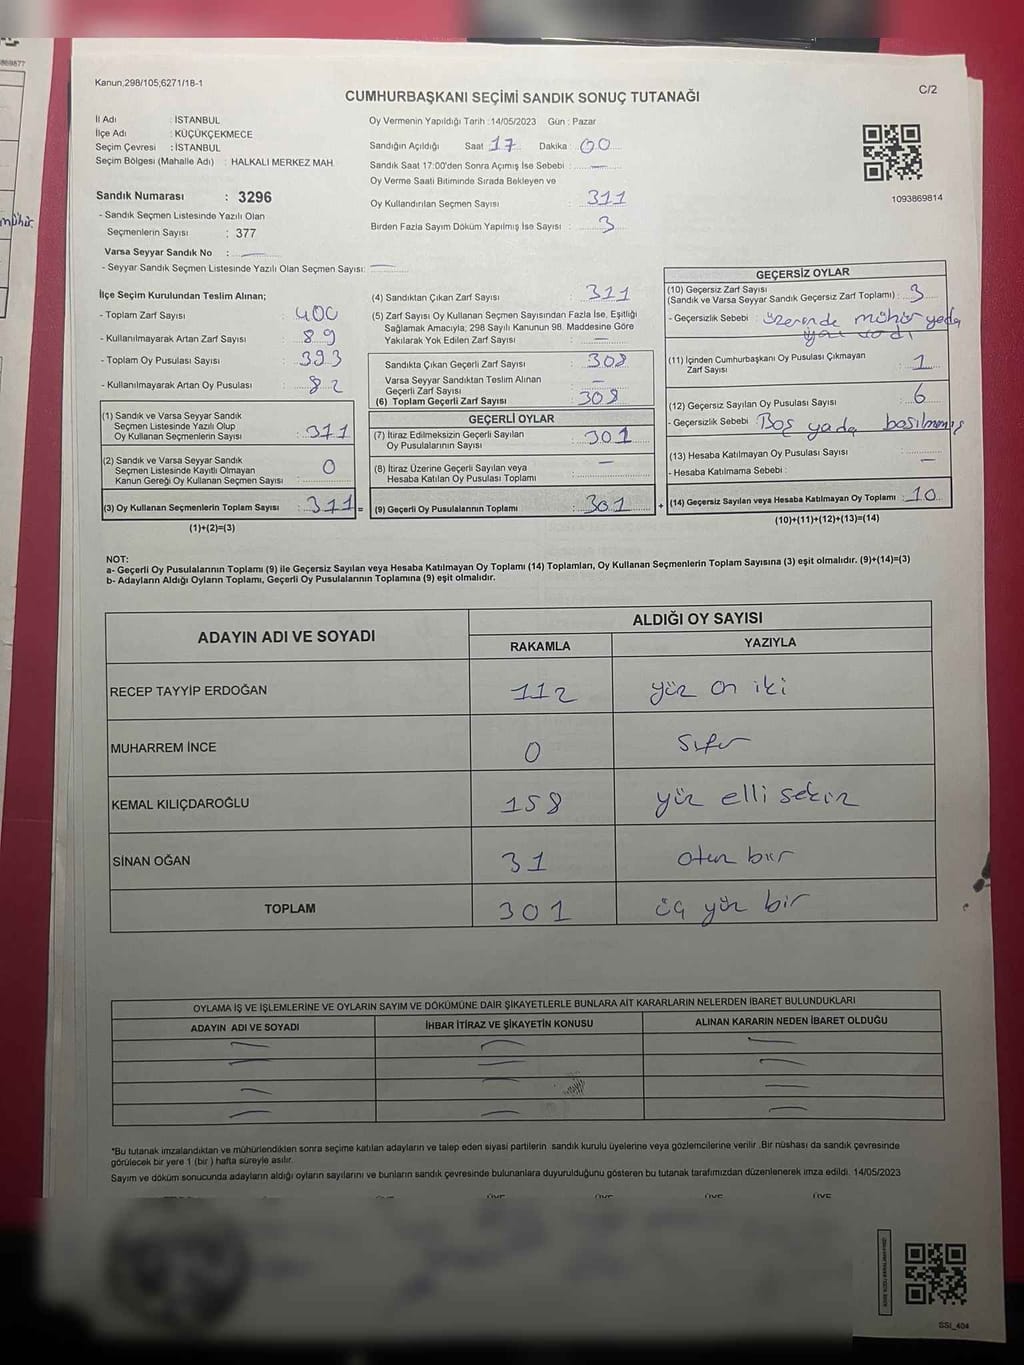 Kanun,298/105,6271/18-1
C/2
CUMHURBAŞKANI SEÇİMİ SANDIK SONUÇ TUTANAĞI
İl Adı : İSTANBUL
İlçe Adı : KÜÇÜKÇEKMECE
Seçim Çevresi : İSTANBUL
Seçim Bölgesi (Mahalle Adı) : HALKALI MERKEZ MAH.
Sandık Numarası : 3296
- Sandık Seçmen Listesinde Yazılı Olan
Seçmenlerin Sayısı : 377
Varsa Seyyar Sandık No : —
- Seyyar Sandık Seçmen Listesinde Yazılı Olan Seçmen Sayısı: —
Oy Vermenin Yapıldığı Tarih : 14/05/2023 Gün : Pazar
Sandığın Açıldığı Saat 17 Dakika : 00
Sandık Saat 17:00'den Sonra Açımış İse Sebebi : —
Oy Verme Saati Bitiminde Sırada Bekleyen ve
Oy Kullandırılan Seçmen Sayısı : 311
Birden Fazla Sayım Döküm Yapılmış İse Sayısı : 3
1093869814
İlçe Seçim Kurulundan Teslim Alınan;
- Toplam Zarf Sayısı : 400
- Kullanılmayarak Artan Zarf Sayısı : 89
- Toplam Oy Pusulası Sayısı : 393
- Kullanılmayarak Artan Oy Pusulası : 82
(1) Sandık ve Varsa Seyyar Sandık
Seçmen Listesinde Yazılı Olup
Oy Kullanan Seçmenlerin Sayısı : 311
(2) Sandık ve Varsa Seyyar Sandık
Seçmen Listesinde Kayıtlı Olmayan
Kanun Gereği Oy Kullanan Seçmen Sayısı : 0
(3) Oy Kullanan Seçmenlerin Toplam Sayısı : 311 =
(1)+(2)=(3)
(4) Sandıktan Çıkan Zarf Sayısı : 311
(5) Zarf Sayısı Oy Kullanan Seçmen Sayısından Fazla İse, Eşitliği
Sağlamak Amacıyla; 298 Sayılı Kanunun 98. Maddesine Göre
Yakılarak Yok Edilen Zarf Sayısı : —
Sandıkta Çıkan Geçerli Zarf Sayısı : 308
Varsa Seyyar Sandıktan Teslim Alınan
Geçerli Zarf Sayısı : —
(6) Toplam Geçerli Zarf Sayısı : 308
GEÇERLİ OYLAR
(7) İtiraz Edilmeksizin Geçerli Sayılan
Oy Pusulalarının Sayısı : 301
(8) İtiraz Üzerine Geçerli Sayılan veya
Hesaba Katılan Oy Pusulası Toplamı : —
(9) Geçerli Oy Pusulalarının Toplamı : 301 +
GEÇERSİZ OYLAR
(10) Geçersiz Zarf Sayısı
(Sandık ve Varsa Seyyar Sandık Geçersiz Zarf Toplamı) : 3
- Geçersizlik Sebebi : üzerinde mühür yada
(11) İçinden Cumhurbaşkanı Oy Pusulası Çıkmayan
Zarf Sayısı : 1
(12) Geçersiz Sayılan Oy Pusulası Sayısı : 6
- Geçersizlik Sebebi : Boş yada basılmamış
(13) Hesaba Katılmayan Oy Pusulası Sayısı : —
- Hesaba Katılmama Sebebi :
(14) Geçersiz Sayılan veya Hesaba Katılmayan Oy Toplamı : 10
(10)+(11)+(12)+(13)=(14)
NOT:
a- Geçerli Oy Pusulalarının Toplamı (9) ile Geçersiz Sayılan veya Hesaba Katılmayan Oy Toplamı (14) Toplamları, Oy Kullanan Seçmenlerin Toplam Sayısına (3) eşit olmalıdır. (9)+(14)=(3)
b- Adayların Aldığı Oyların Toplamı, Geçerli Oy Pusulalarının Toplamına (9) eşit olmalıdır.
ADAYIN ADI VE SOYADI
ALDIĞI OY SAYISI
RAKAMLA YAZIYLA
RECEP TAYYİP ERDOĞAN 112 yüz on iki
MUHARREM İNCE 0 Sıfır
KEMAL KILIÇDAROĞLU 158 yüz elli sekiz
SİNAN OĞAN 31 otuz bir
TOPLAM 301 üç yüz bir
OYLAMA İŞ VE İŞLEMLERİNE VE OYLARIN SAYIM VE DÖKÜMÜNE DAİR ŞİKAYETLERLE BUNLARA AİT KARARLARIN NELERDEN İBARET BULUNDUKLARI
ADAYIN ADI VE SOYADI İHBAR İTİRAZ VE ŞİKAYETİN KONUSU ALINAN KARARIN NEDEN İBARET OLDUĞU
*Bu tutanak imzalandıktan ve mühürlendikten sonra seçime katılan adayların ve talep eden siyasi partilerin sandık kurulu üyelerine veya gözlemcilerine verilir .Bir nüshası da sandık çevresinde
görülecek bir yere 1 (bir ) hafta süreyle asılır.
Sayım ve döküm sonucunda adayların aldığı oyların sayılarını ve bunların sandık çevresinde bulunanlara duyurulduğunu gösteren bu tutanak tarafımızdan düzenlenerek imza edildi. 14/05/2023
ÜYE ÜYE ÜYE ÜYE
SSI_404